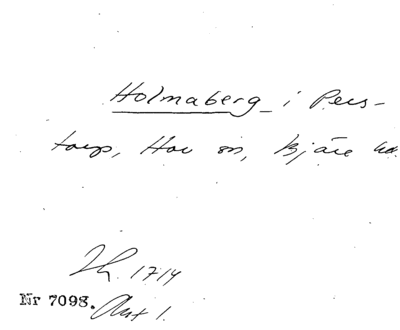 Holmaberg i Pers-
torp, Hov sn, Bjäre hd.
1714
Nr 7098. Art 1.